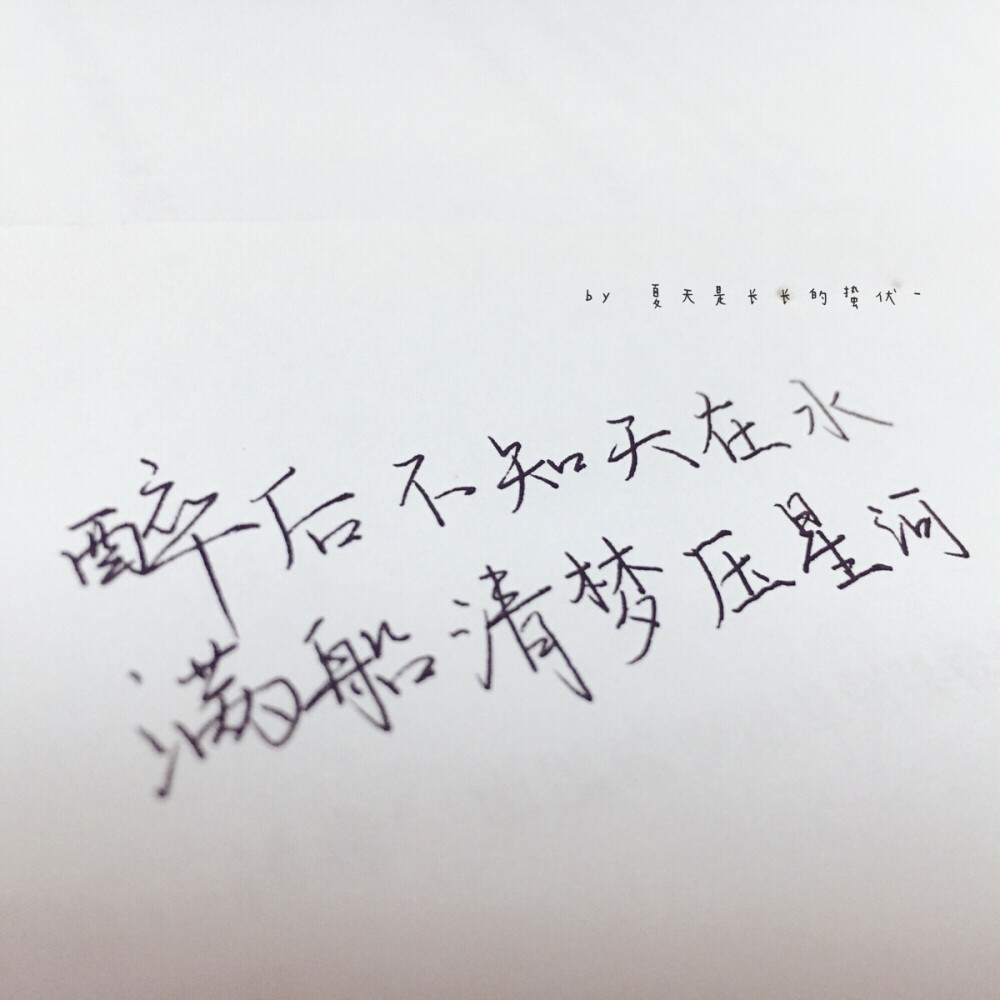 by 夏天是长长的蛰伏-
醉后不知天在水
满船清梦压星河